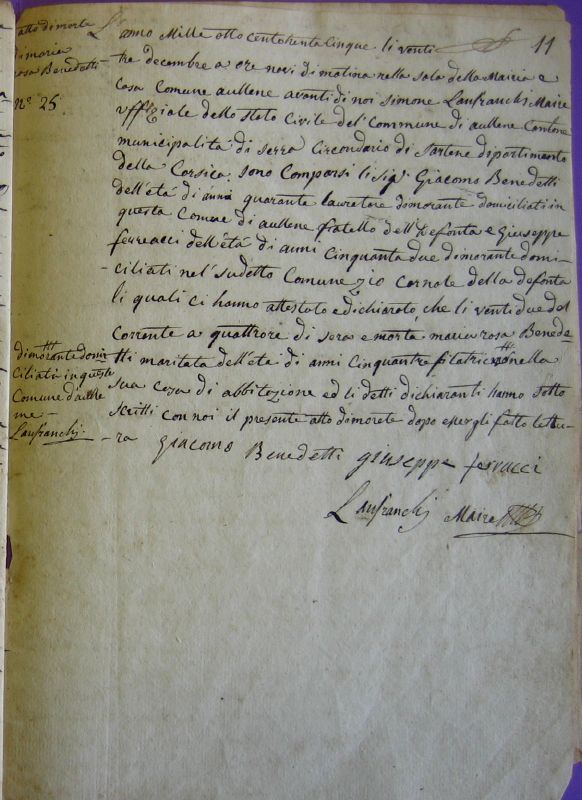 atto di morte
di maria
rosa Benedetti
nº 25
11
L'anno Mille otto cento trenta Cinque li venti
tre decembre a ore novi di matina nella sala della Mairia e
Casa Comune aullene avanti di noi simone Lanfranchi Maire
uffiziale dello stato Civile del Commune di aullene Cantone
municipalità di serra Circondario di Sartene dipartimento
della Corsica, sono Comparsi li sigi Giacomo Benedetti
dell'età di anni quaranta lavratore dimorante domiciliati in
questa Comune di aullene fratello dell' defonta e Giuseppe
ferracci dell'età di anni Cinquanta due dimorante domi-
-ciliati nel sudetto Comune zio carnale della defonta
li quali ci hanno attestato e dichiarato, che li venti due del
Corrente a quattrore di sera e morta maria rosa Benede-
-tti maritata dell'età di anni Cinquantre filatrice nella
sua caza di abbitazione ed li detti dichiaranti hanno sotto
scritti con noi il presente atto di morete dopo esergli fatto lettu-
-ra
dimorante domi-
ciliati in queste
Comune d'aulle
ne-
Lanfranchi
giacomo Benedetti giuseppe ferracci
Lanfranchi Maire